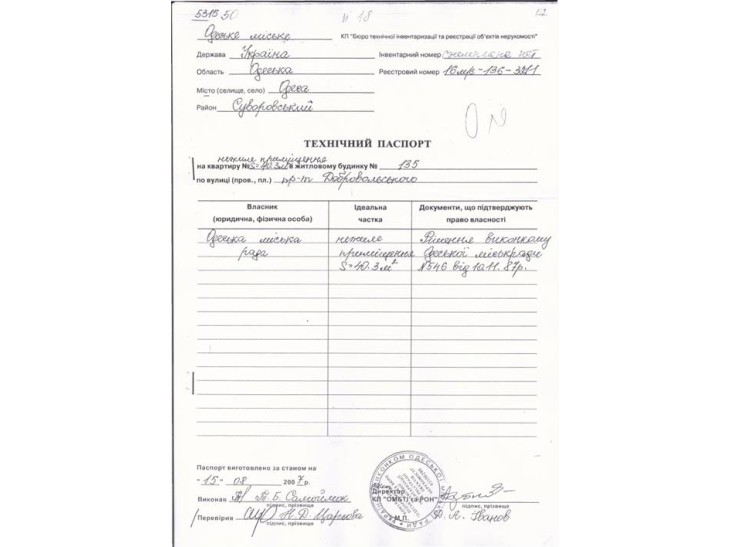 5315 50 п 18
Одеське міське КП "Бюро технічної інвентаризації та реєстрації об'єктів нерухомості"
Держава Україна Інвентарний номер
Область Одеська Реєстровий номер
Місто (селище, село) Одеса
Район Суворовський
ТЕХНІЧНИЙ ПАСПОРТ
нежиле приміщення
на квартиру № S=40.3м² в житловому будинку № 135
по вулиці (пров., пл.) пр-т Добровольського
Власник Ідеальна Документи, що підтверджують
(юридична, фізична особа) частка право власності
Одеська міська нежиле Рішення виконкому
рада приміщення Одеської міськради
S=40.3м² №546 від 10.11.87р.
Паспорт виготовлено за станом на
-15- 08 2007р.
Виконав
підпис, прізвище
Директор
КП "ОМБТІ та РОН"
підпис, прізвище
Перевірив Н.Д. Царьова М.П. Д.А. Іванов
підпис, прізвище